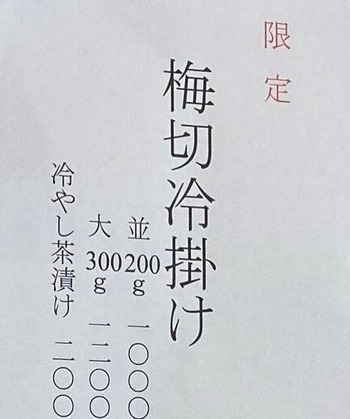 限定
梅切冷掛け
並 200g 一〇〇〇
大 300g 一二〇〇
冷やし茶漬け 二〇〇